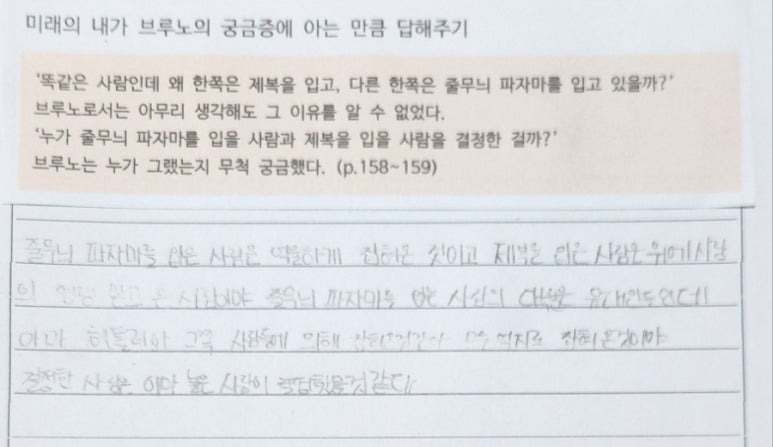 미래의 내가 브루노의 궁금증에 아는 만큼 답해주기
‘똑같은 사람인데 왜 한쪽은 제복을 입고, 다른 한쪽은 줄무늬 파자마를 입고 있을까?’
브루노로서는 아무리 생각해도 그 이유를 알 수 없었다.
‘누가 줄무늬 파자마를 입을 사람과 제복을 입을 사람을 결정한 걸까?’
브루노는 누가 그랬는지 무척 궁금했다. (p.158~159)
줄무늬 파자마를 입은 사람은 억울하게 잡혀온 것이고 제복을 입은 사람은 위에 사람
의 받고 온 사람이야 줄무늬 파자마를 입는 사람의 대부분 유대인들인데
아마 히틀러와 그쪽 사람들에 의해 억지로 잡혀온것이야
결정한 사람은 아마 높은 사람이 같다